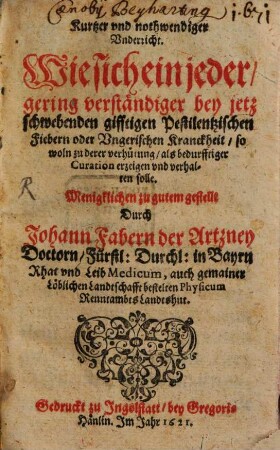 Cœnobij Beyharting
Kurtzer vnd nothwendiger
Vnderricht.
Wie sich ein jeder /
gering verständiger bey jetz
schwebenden gifftigen Pestilentzischen
Fiebern oder Vngerischen Kranckheit / so
woln zu derer verhütung / als bedurfftiger
Curation erzeigen vnd verhal-
ten solle.
Menigklichen zu gutem gestellt
Durch
Johann Fabern der Artzney
Doctorn / Fürstl: Durchl: in Bayrn
Rhat vnd Leib Medicum, auch gemainer
Löblichen Landtschafft bestelten Physicum
Renntambts Landtshut.
Gedruckt zu Ingolstatt / bey Gregorio
Hänlin. Im Jahr 1621.